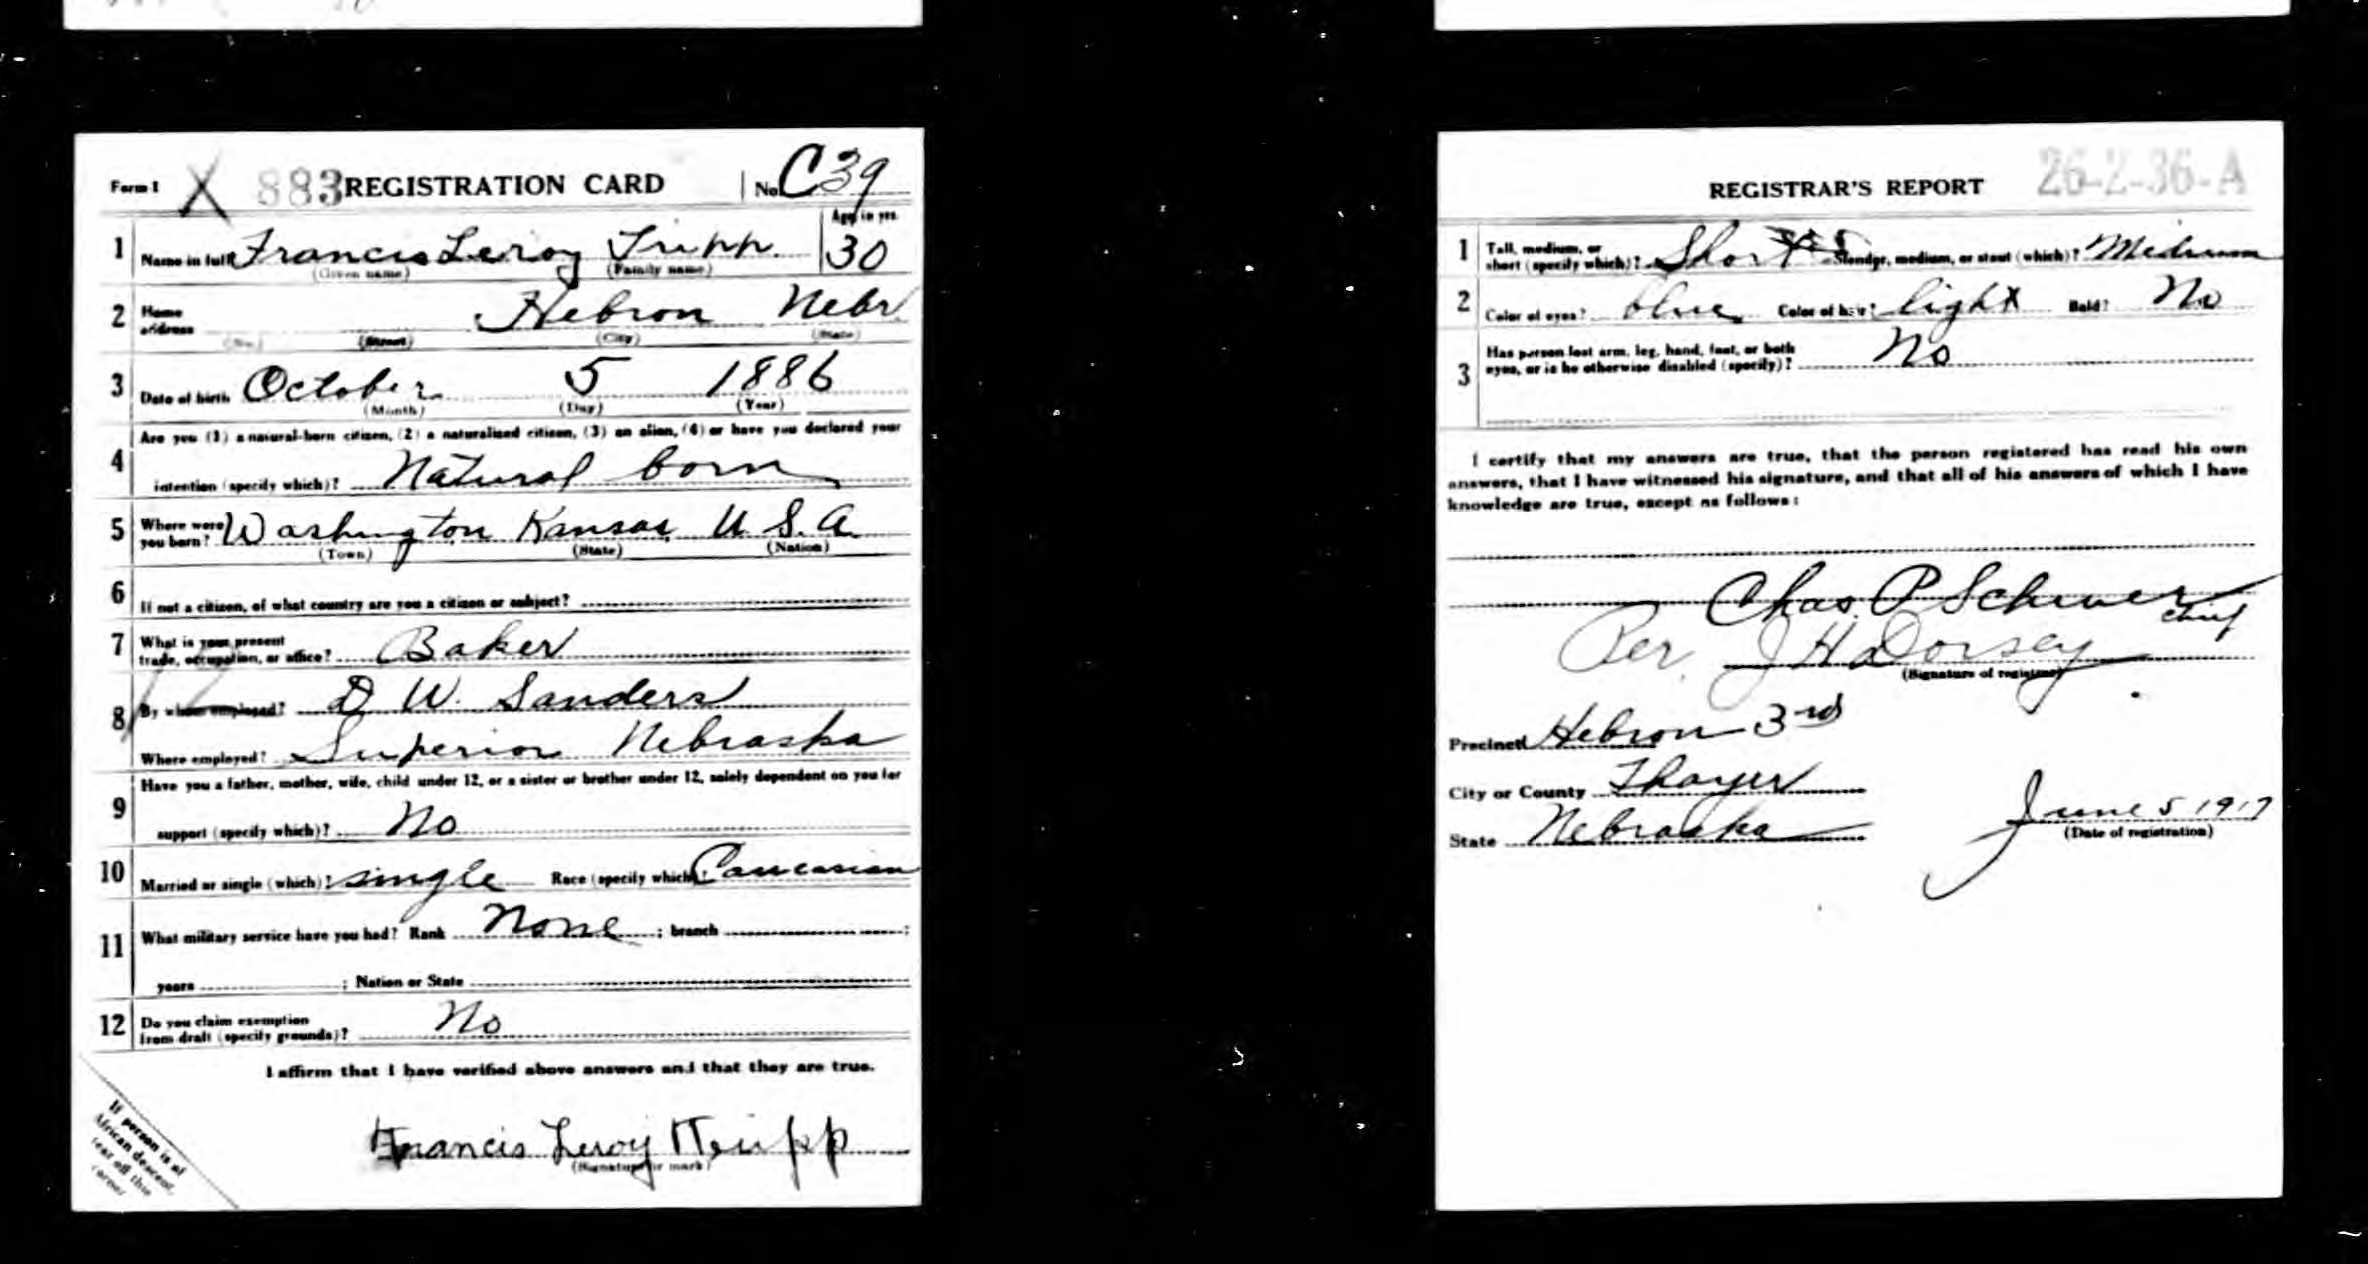 Form 1 X 883 REGISTRATION CARD No. C39
1 Name in full Francis Leroy Tripp Age in yrs. 30
(Given name) (Family name)
2 Home address Hebron Nebr
(No.) (Street) (City) (State)
3 Date of birth October 5 1886
(Month) (Day) (Year)
4 Are you (1) a natural-born citizen, (2) a naturalized citizen, (3) an alien, (4) or have you declared your
intention (specify which)? Natural born
5 Where were you born? Washington Kansas U.S.A.
(Town) (State) (Nation)
6 If not a citizen, of what country are you a citizen or subject?
7 What is your present
trade, occupation, or office? Baker
8 By whom employed? D W. Sanders
Where employed? Superior Nebraska
9 Have you a father, mother, wife, child under 12, or a sister or brother under 12, solely dependent on you for
support (specify which)? No
10 Married or single (which)? single Race (specify which)? Caucasian
11 What military service have you had? Rank None ; branch ;
years ; Nation or State
12 Do you claim exemption
from draft (specify grounds)? No
I affirm that I have verified above answers and that they are true.
Francis Leroy Tripp
(Signature or mark)
If person is of
African descent,
tear off this
corner
REGISTRAR'S REPORT 26-2-36-A
1 Tall, medium, or
short (specify which)? Short Slender, medium, or stout (which)? Medium
2 Color of eyes? blue Color of hair? light Bald? No
3 Has person lost arm, leg, hand, foot, or both
eyes, or is he otherwise disabled (specify)? No
I certify that my answers are true, that the person registered has read his own
answers, that I have witnessed his signature, and that all of his answers of which I have
knowledge are true, except as follows:
Chas. P Schwer
chief
Per. J H Dorsey
(Signature of registrar)
Precinct Hebron 3rd
City or County Thayer
State Nebraska
June 5 1917
(Date of registration)